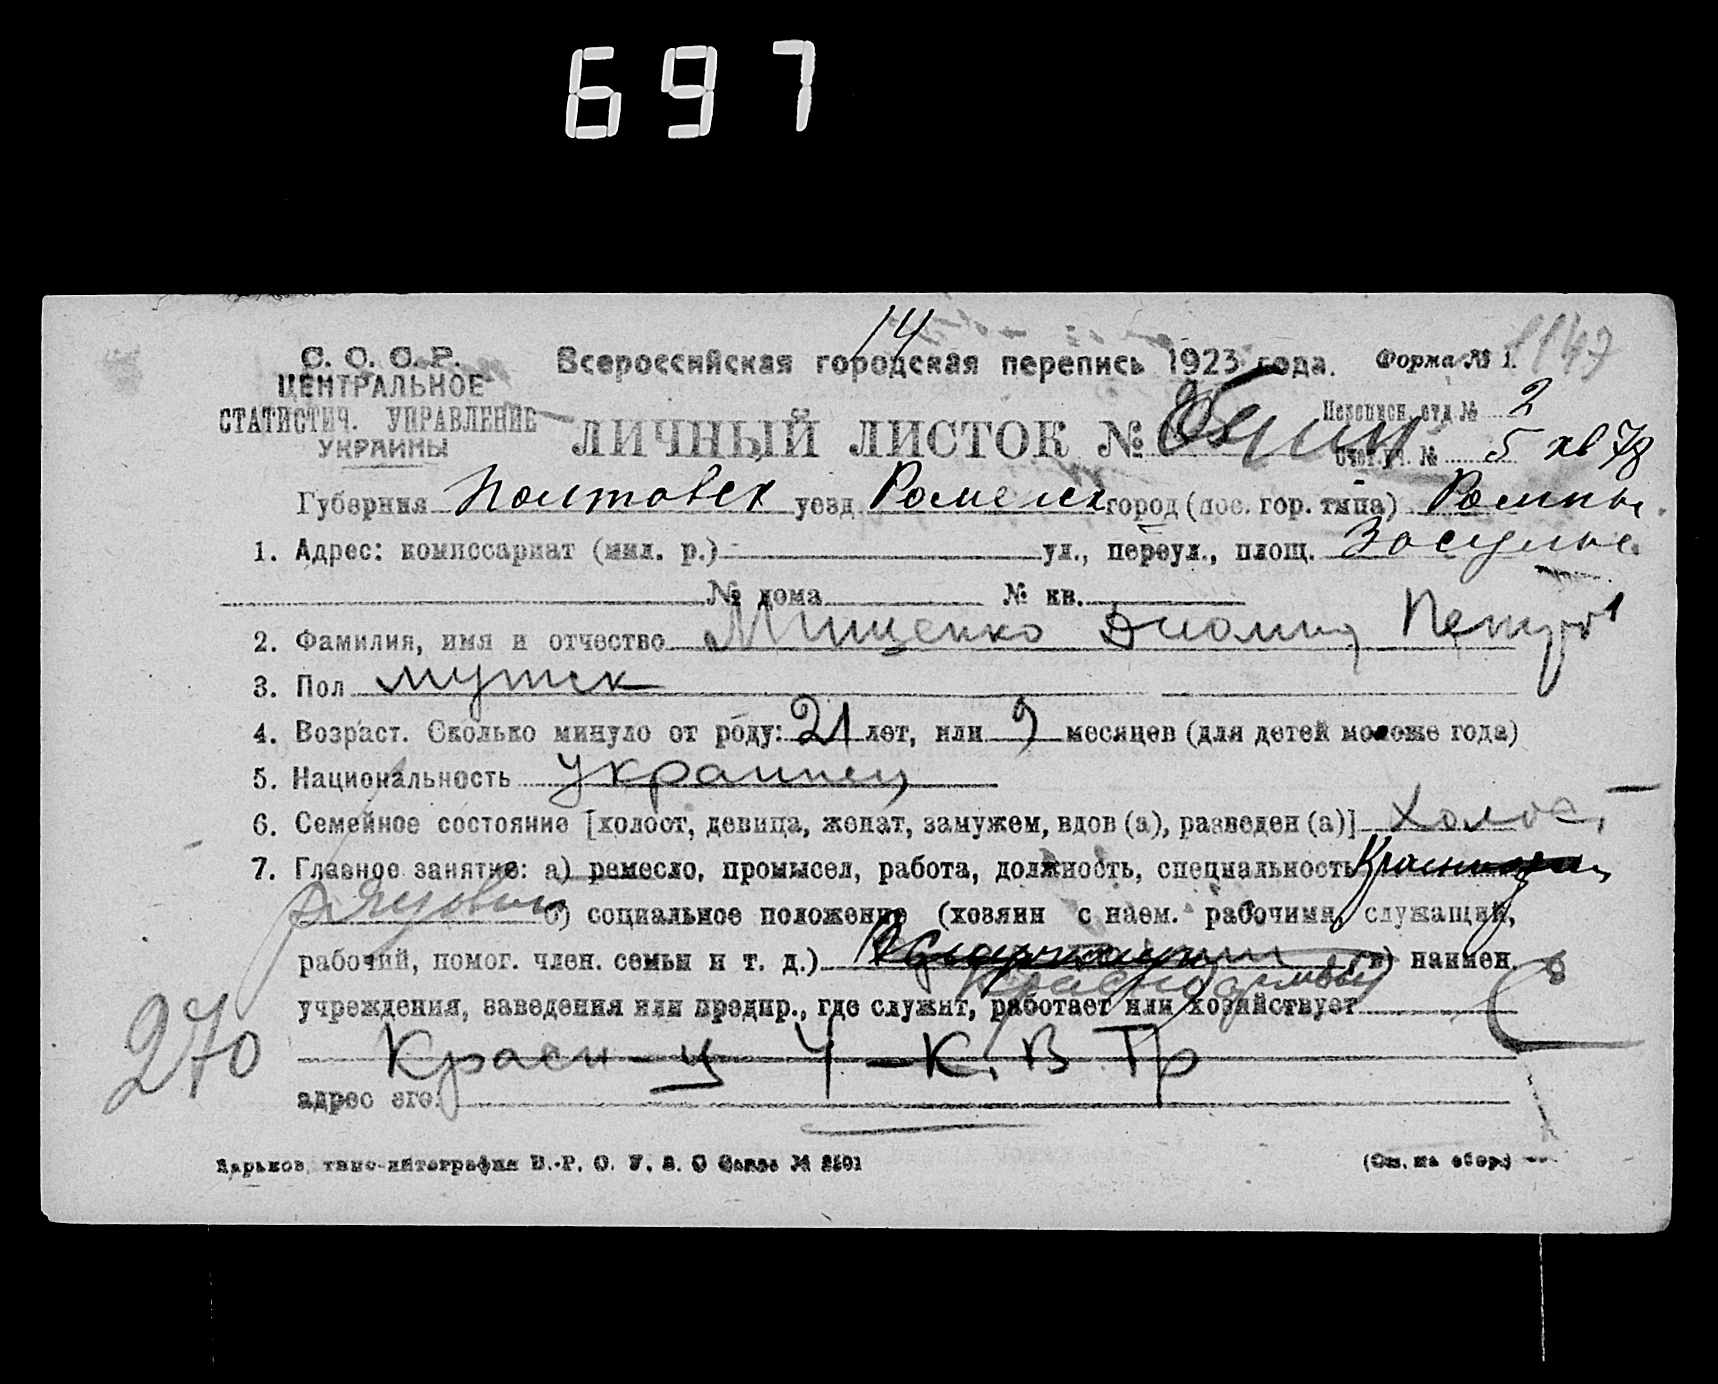 697
14
С. С. С. Р.
ЦЕНТРАЛЬНОЕ
СТАТИСТИЧ. УПРАВЛЕНИЕ
УКРАИНЫ
Всероссийская городская перепись 1923 года.
Форма № 1.
1147
ЛИЧНЫЙ ЛИСТОК №
Переписн. отд № 2
Счетн. уч. № 5 кв 78
Губерния Полтавск уезд Роменск город (пос. гор. типа) Ромны
1. Адрес: комиссариат (мил. р.) ул., переул., площ. Засулье
№ дома № кв.
2. Фамилия, имя и отчество Мищенко Диомид Петров
3. Пол мужск
4. Возраст. Сколько минуло от роду: 21 лет, или 9 месяцев (для детей моложе года)
5. Национальность украинец
6. Семейное состояние [холост, девица, женат, замужем, вдов (а), разведен (а)] холост
7. Главное занятие: а) ремесло, промысел, работа, должность, специальность
рядовой б) социальное положение (хозяин с наем. рабочими, служащий,
рабочий, помог. член. семьи и т. д.) в) наимен.
учреждения, заведения или предпр., где служит, работает или хозяйствует
270
Красн-ц 4-К. В Тр
адрес его:
Харьков, типо-литография В.-Р. О. У. В. О Заказ № 2501
(См. на обор.)